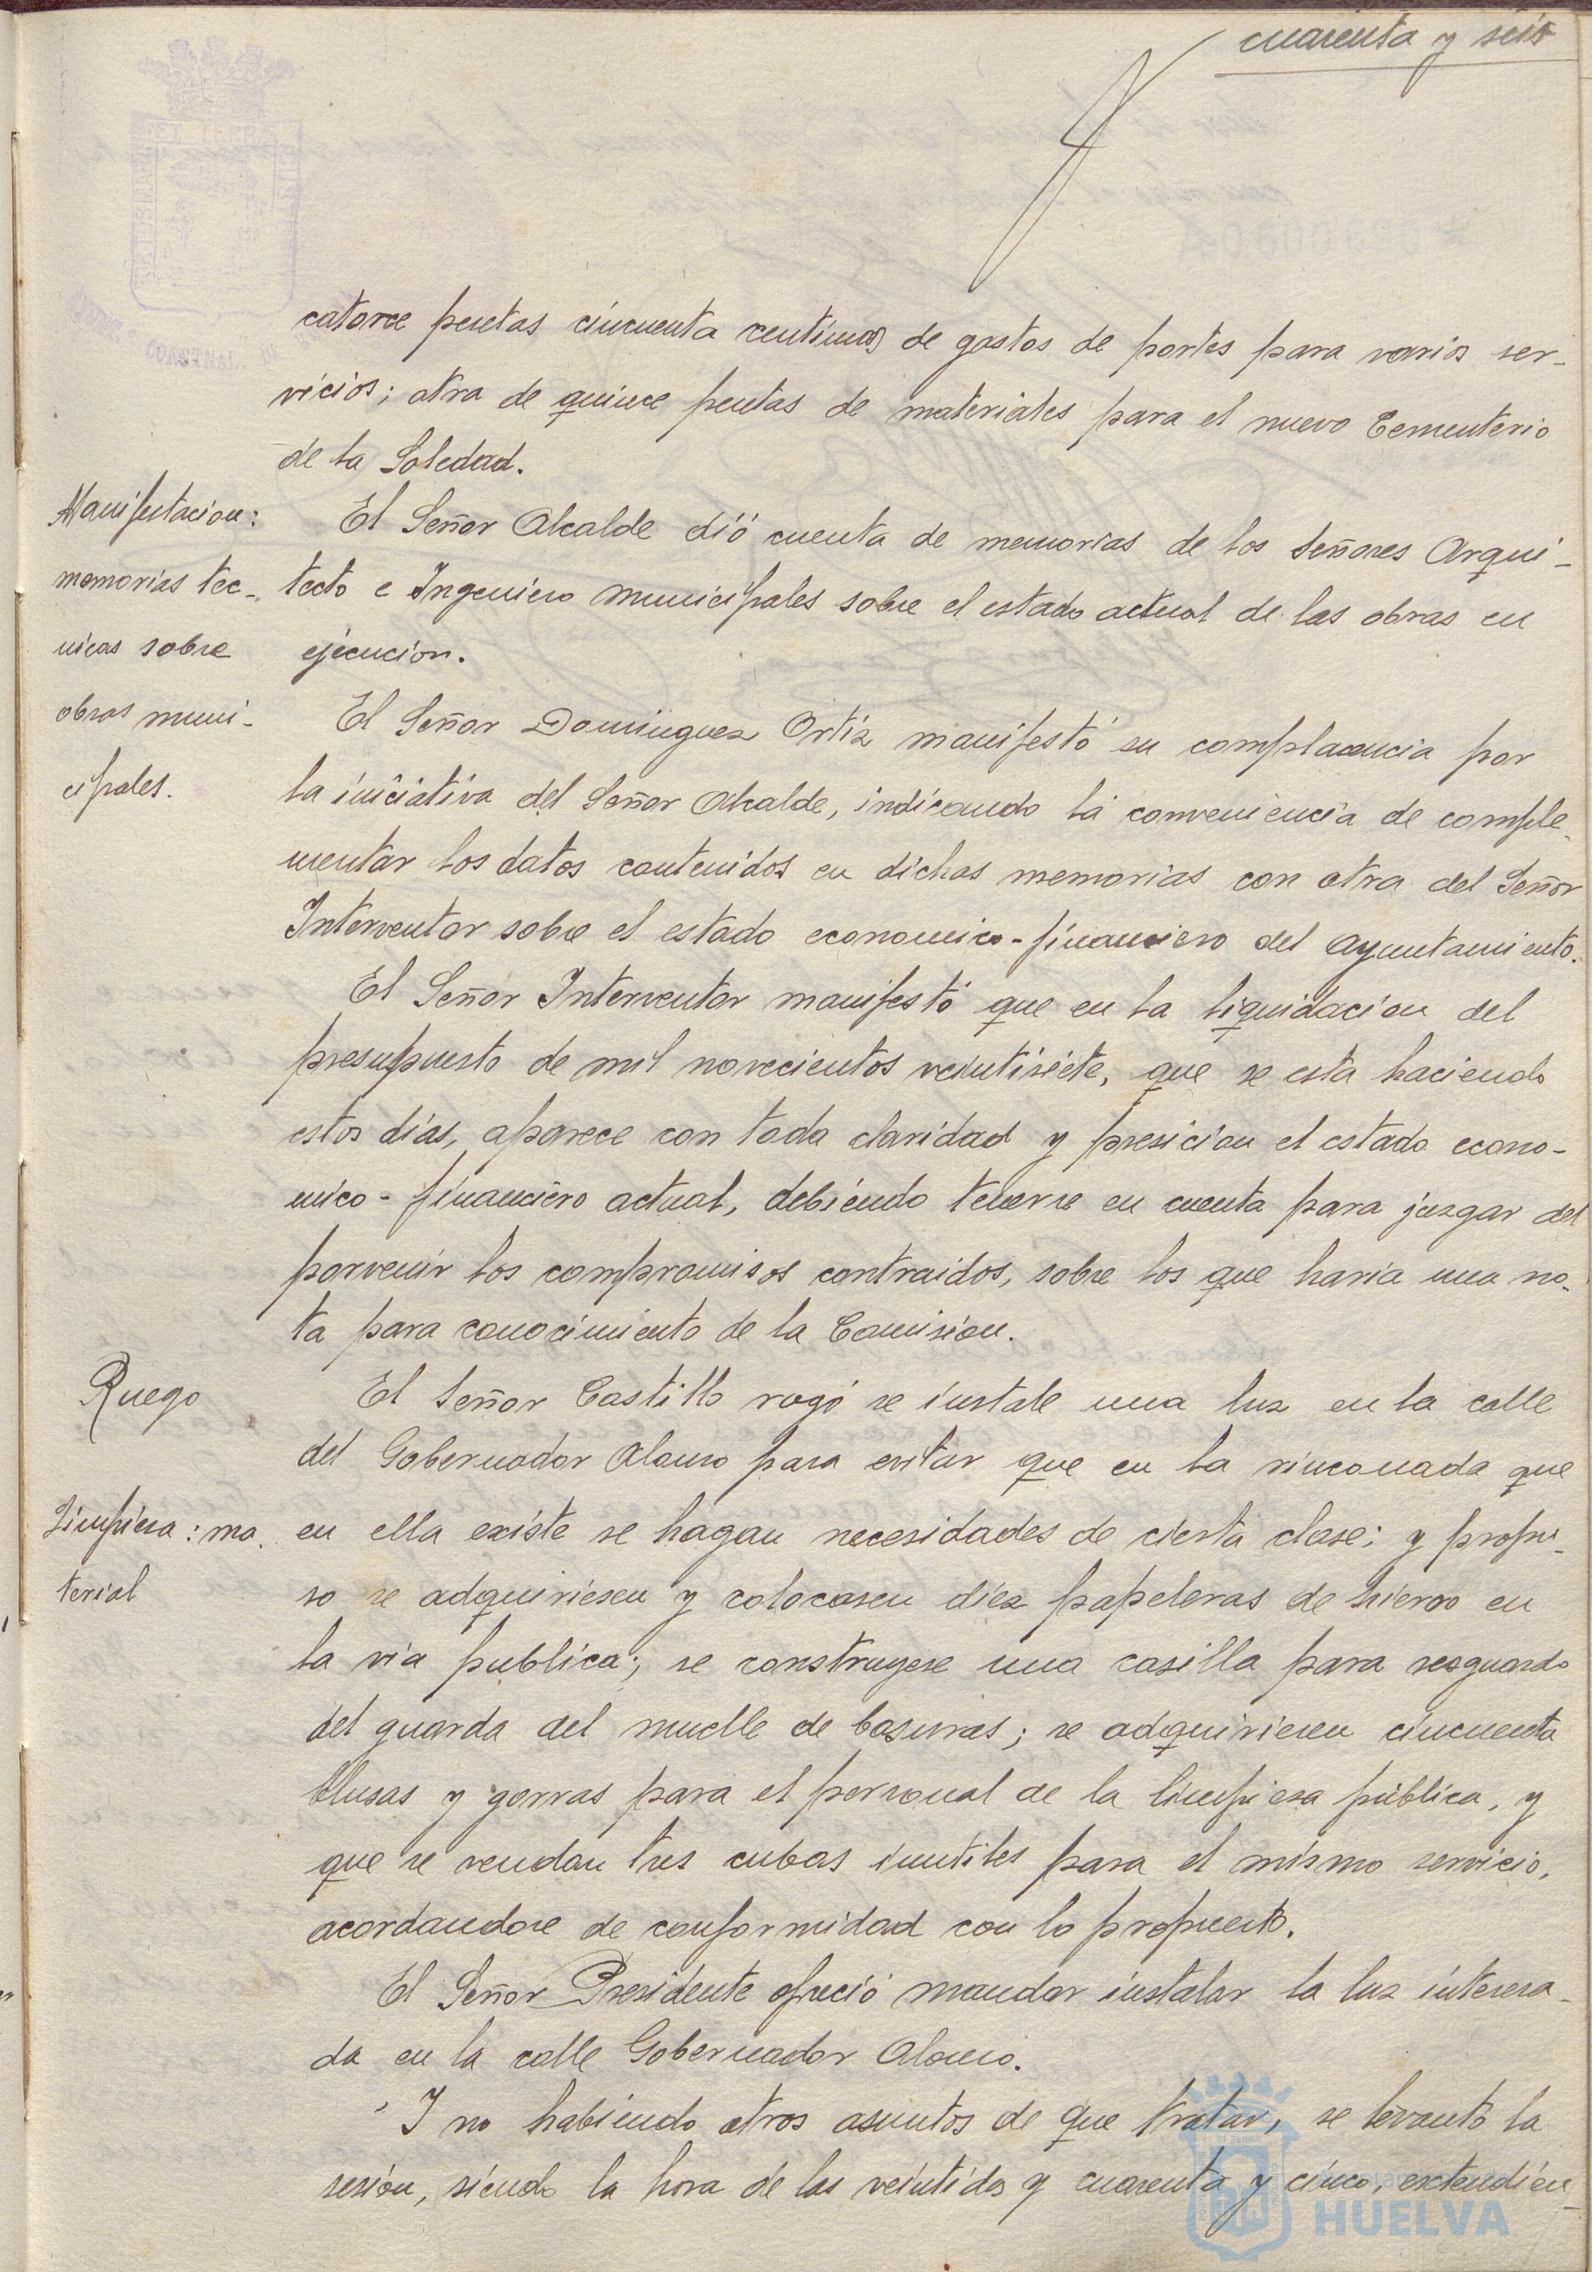 cuarenta y seis
catorce pesetas cincuenta centimos de gastos de portes para varios ser-
vicios; otra de quince pesetas de materiales para el nuevo Cementerio
de la Soledad.
Manifestacion:
memorias tec-
nicas sobre
obras muni-
cipales.
El Señor Alcalde dió cuenta de memorias de los Señores Arqui-
tecto e Ingeniero municipales sobre el estado actual de las obras en
ejecucion.
El Señor Dominguez Ortiz manifestó su complacencia por
la iniciativa del Señor Alcalde, indicando la conveniencia de comple-
mentar los datos contenidos en dichas memorias con otra del Señor
Interventor sobre el estado economico-financiero del Ayuntamiento.
El Señor Interventor manifestó que en la liquidacion del
presupuesto de mil novecientos veintisiete, que se esta haciendo
estos días, aparece con toda claridad y presicion el estado econo-
mico-financiero actual, debiendo tenerse en cuenta para juzgar del
porvenir los compromisos contraidos, sobre los que haria una no-
ta para conocimiento de la Comision.
Ruego
El Señor Castillo rogó se instale una luz en la calle
del Gobernador Alonso para evitar que en la rinconada que
Limpieza: ma-
terial
en ella existe se hagan necesidades de cierta clase; y propu-
so se adquiriesen y colocasen diez papeleras de hierro en
la via publica; se construyese una casilla para resguardo
del guarda del muelle de basuras; se adquiriesen cincuenta
blusas y gorras para el personal de la limpieza pública, y
que se vendan tres cubas inutiles para el mismo servicio,
acordandose de conformidad con lo propuesto.
El Señor Presidente ofreció mandar instalar la luz interesa-
da en la calle Gobernador Alonso.
Y no habiendo otros asuntos de que tratar, se levantó la
sesion, siendo la hora de las veintidos y cuarenta y cinco, extendien-
HUELVA